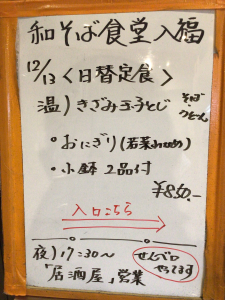 和そば食堂入福
12/13<日替定食>
温)きざみ玉子とじ そば・うどん
・おにぎり(若菜わかめ)
・小鉢2品付
¥850,-
入口こちら
夜)17:30〜
せんべろやってます
「居酒屋」営業